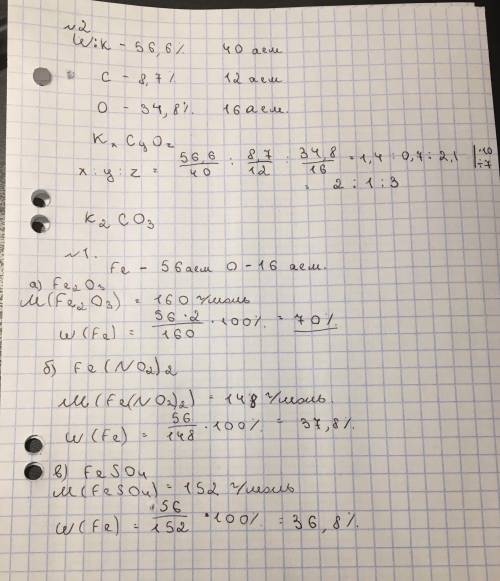 №2
W: K - 56,6% 40 аем
C - 8,7% 12 аем
O - 34,8% 16 аем.
KxCyOz
x : y : z = 56,6/40 : 8,7/12 : 34,8/16 = 1,4 : 0,7 : 2,1 |·10 ÷7
= 2 : 1 : 3
K2CO3
№1.
Fe - 56 аем O - 16 аем.
а) Fe2O3
M(Fe2O3) = 160 г/моль
W(Fe) = 56·2/160 · 100% = 70%.
б) Fe(NO2)2
M(Fe(NO2)2) = 148 г/моль
W(Fe) = 56/148 · 100% = 37,8%.
в) FeSO4
M(FeSO4) = 152 г/моль
W(Fe) = 56/152 · 100% = 36,8%.